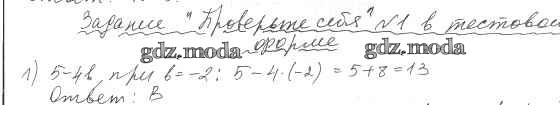 Задание "Проверьте себя" №1 в тестовой
форме
gdz.moda gdz.moda
1) 5-4в при в=-2: 5-4·(-2)=5+8=13
Ответ: В